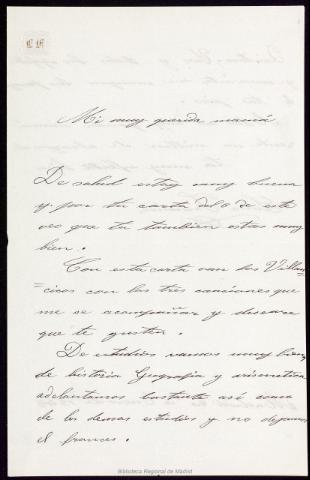 Mi muy querida mamá
De salud estoy muy buena
y por tu carta del 6 de este
veo que tu tambien estas muy
bien.
Con esta carta van los Villan-
=cicos con las tres canciones que
me se acompañar y deseare
que te gusten.
De estudios vamos muy bien,
de historia Geografia y arismetica
adelantamos bastante asi como
de los demas estudios y no dejamos
el frances.
Biblioteca Regional de Madrid